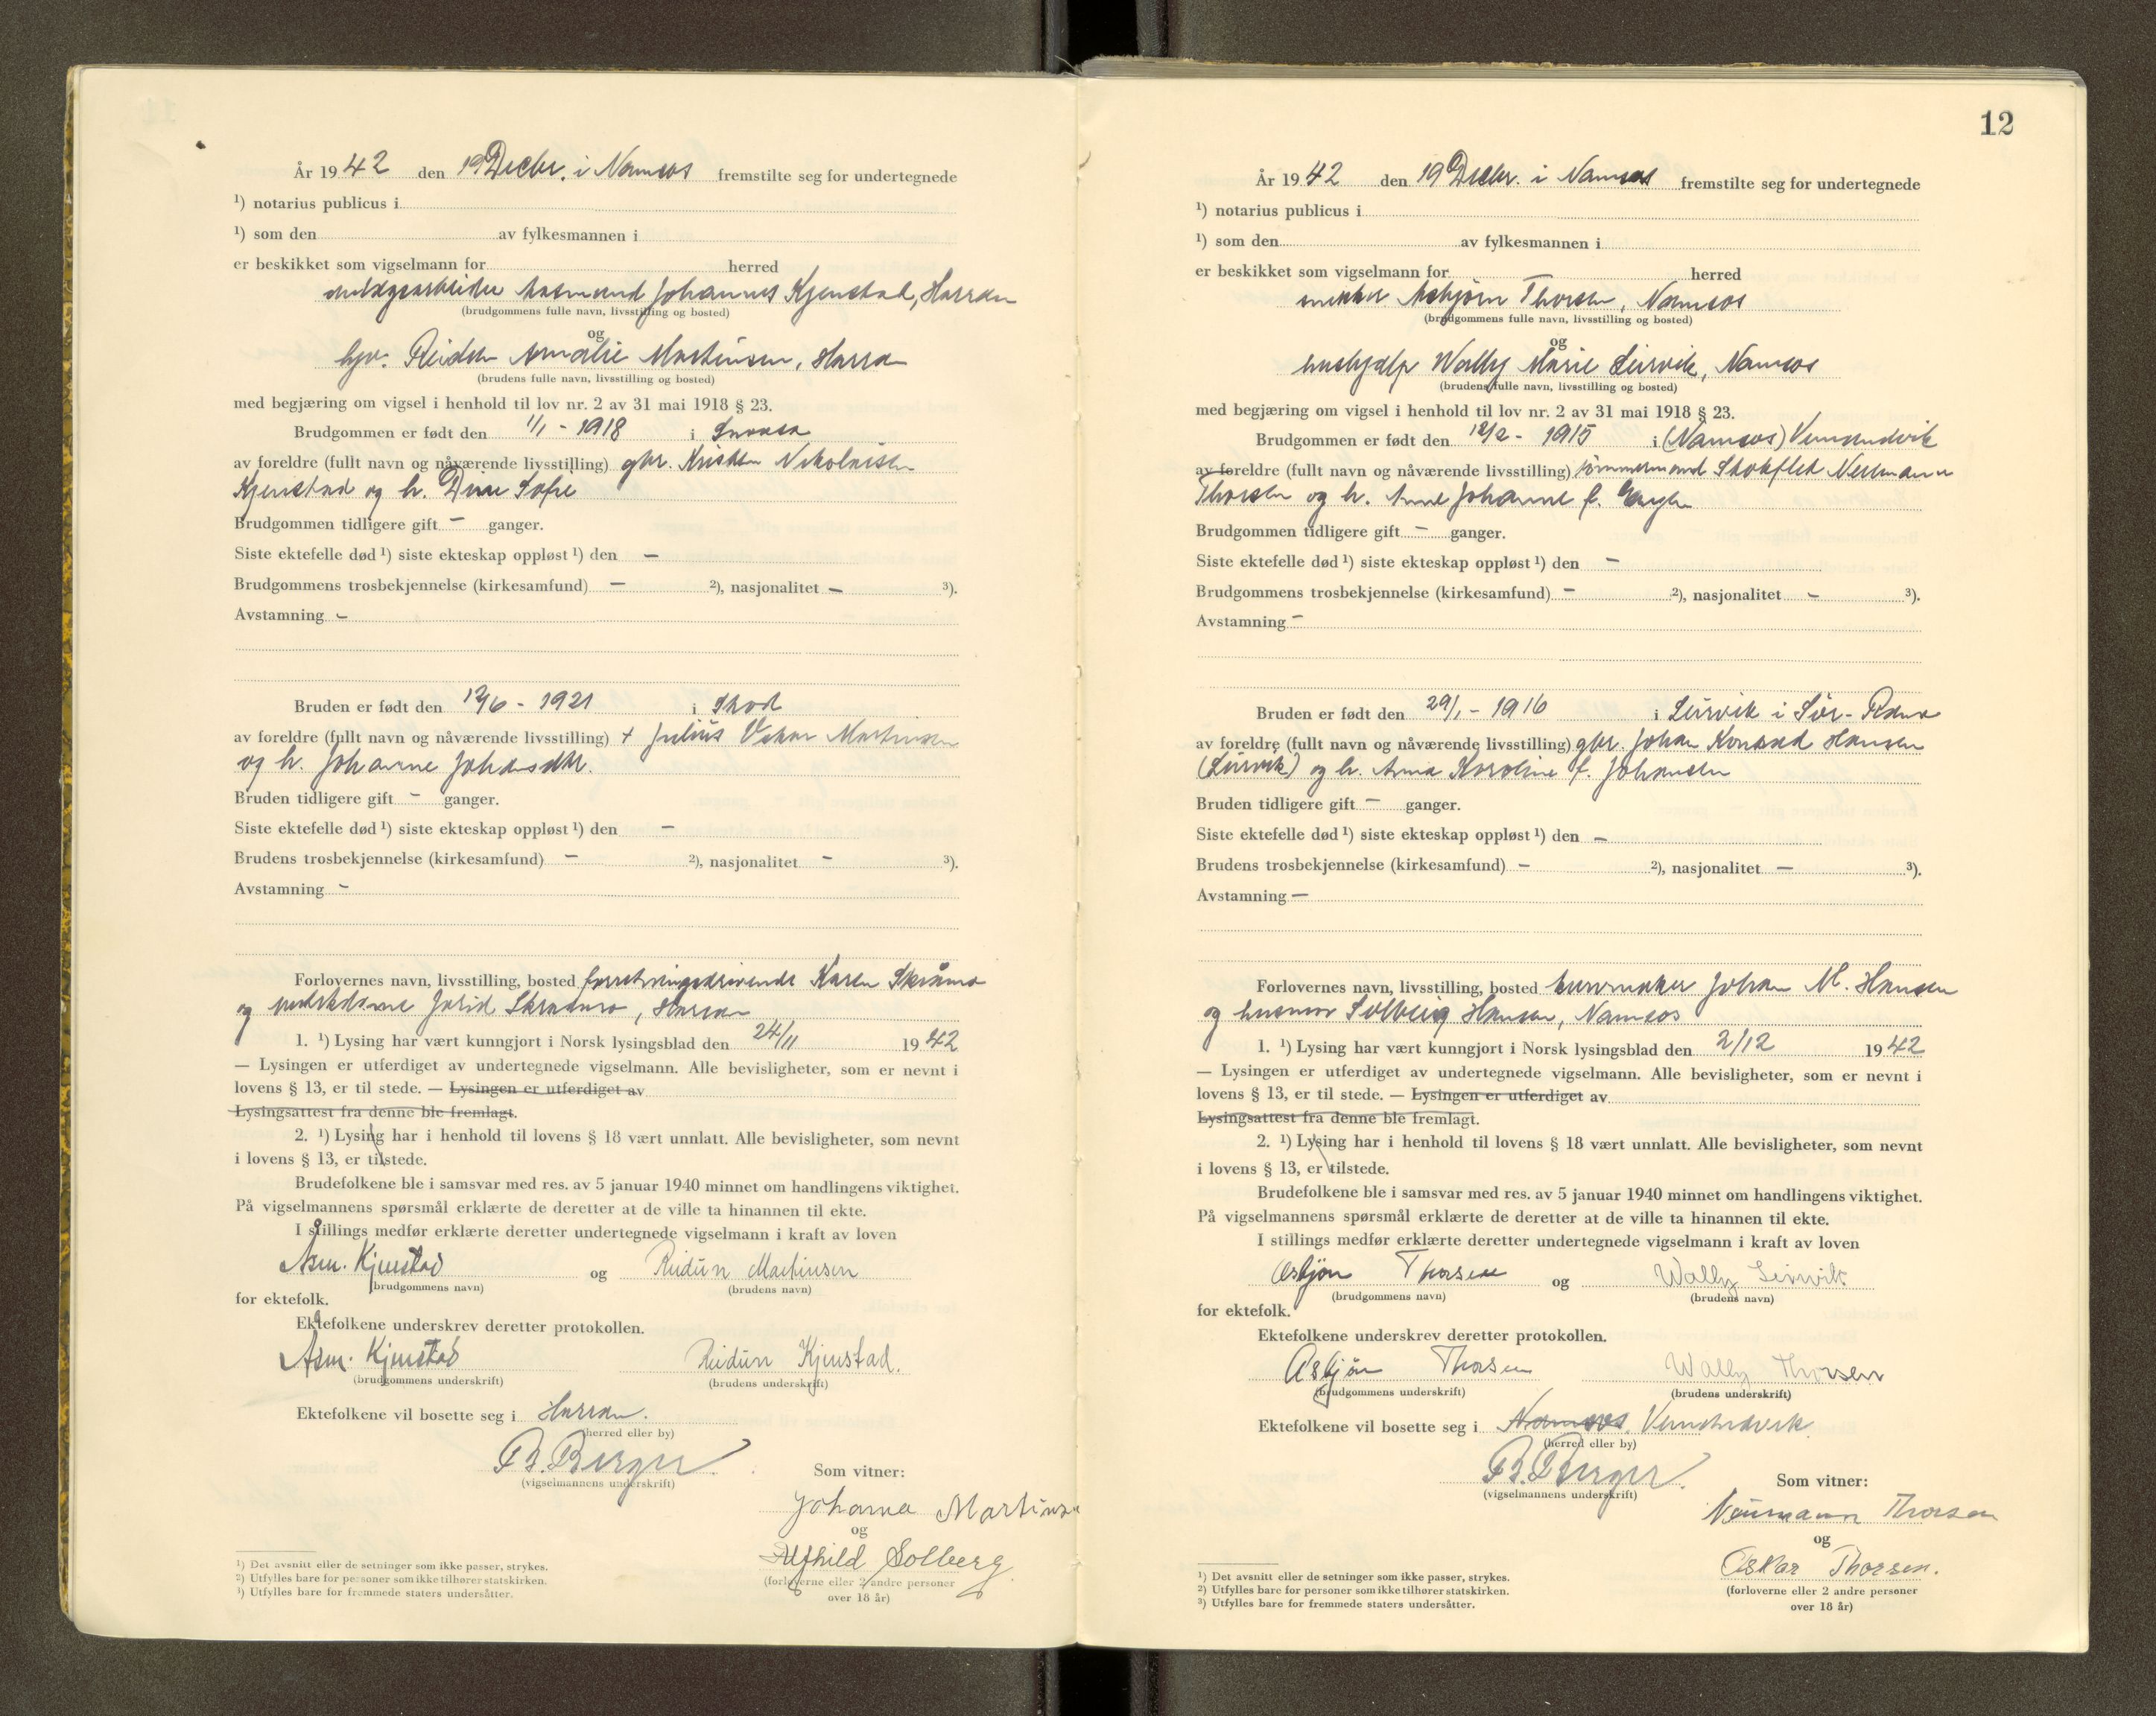 År 1942 den 19 Decbr. i Namsos fremstilte seg for undertegnede
¹) notarius publicus i
¹) som den av fylkesmannen i
er beskikket som vigselmann for herred
anlægsarbeider Aasmund Johannes Kjenstad, Harran
(brudgommens fulle navn, livsstilling og bosted)
og
hjv. Reidun Amalie Martinsen, Harran
(brudens fulle navn, livsstilling og bosted)
med begjæring om vigsel i henhold til lov nr. 2 av 31 mai 1918 § 23.
Brudgommen er født den 1/1 - 1918 i Snaasa
av foreldre (fullt navn og nåværende livsstilling) gbr. Kristen Nikolaisen
Kjenstad og h. Sofie
Brudgommen tidligere gift - ganger.
Siste ektefelle død ¹) siste ekteskap oppløst ¹) den -
Brudgommens trosbekjennelse (kirkesamfund) - ²), nasjonalitet - ³).
Avstamning -
Bruden er født den /6 - 1921 i Skod
av foreldre (fullt navn og nåværende livsstilling) + Julius Martinsen
og h. Johanne
Bruden tidligere gift - ganger.
Siste ektefelle død ¹) siste ekteskap oppløst ¹) den -
Brudens trosbekjennelse (kirkesamfund) - ²), nasjonalitet - ³).
Avstamning -
Forlovernes navn, livsstilling, bosted forretningsdrivende Karen
og Jorid , Harran
1. ¹) Lysing har vært kunngjort i Norsk lysingsblad den 24/11 1942
— Lysingen er utferdiget av undertegnede vigselmann. Alle bevisligheter, som er nevnt i
lovens § 13, er til stede. — Lysingen er utferdiget av
Lysingsattest fra denne ble fremlagt.
2. ¹) Lysing har i henhold til lovens § 18 vært unnlatt. Alle bevisligheter, som nevnt
i lovens § 13, er tilstede.
Brudefolkene ble i samsvar med res. av 5 januar 1940 minnet om handlingens viktighet.
På vigselmannens spørsmål erklærte de deretter at de ville ta hinannen til ekte.
I stillings medfør erklærte deretter undertegnede vigselmann i kraft av loven
Asm. Kjenstad og Reidun Martinsen
(brudgommens navn) (brudens navn)
for ektefolk.
Ektefolkene underskrev deretter protokollen.
Asm. Kjenstad Reidun Kjenstad.
(brudgommens underskrift) (brudens underskrift)
Ektefolkene vil bosette seg i Harran.
(herred eller by)
B. Berger.
(vigselmannens underskrift)
Som vitner:
Johanna Martinsen
og
Alfhild Solberg
(forloverne eller 2 andre personer
over 18 år)
¹) Det avsnitt eller de setninger som ikke passer, strykes.
²) Utfylles bare for personer som ikke tilhører statskirken.
³) Utfylles bare for fremmede staters undersåtter.
12
År 1942 den 19 Decbr. i Namsos fremstilte seg for undertegnede
¹) notarius publicus i
¹) som den av fylkesmannen i
er beskikket som vigselmann for herred
snekker Asbjörn Thorsen, Namsos
(brudgommens fulle navn, livsstilling og bosted)
og
hushjælp Wally Marie Leirvik, Namsos
(brudens fulle navn, livsstilling og bosted)
med begjæring om vigsel i henhold til lov nr. 2 av 31 mai 1918 § 23.
Brudgommen er født den 12/2 - 1915 i (Namsos) Vemundvik
av foreldre (fullt navn og nåværende livsstilling) tömmermand Neumann
Thorsen og h. Anne Johanne f.
Brudgommen tidligere gift - ganger.
Siste ektefelle død ¹) siste ekteskap oppløst ¹) den -
Brudgommens trosbekjennelse (kirkesamfund) - ²), nasjonalitet - ³).
Avstamning -
Bruden er født den 29/1 - 1916 i Leirvik i Sör-
av foreldre (fullt navn og nåværende livsstilling) gbr. Johan Konrad Hansen
(Leirvik) og h. Anna Karoline f. Johansen
Bruden tidligere gift - ganger.
Siste ektefelle død ¹) siste ekteskap oppløst ¹) den -
Brudens trosbekjennelse (kirkesamfund) - ²), nasjonalitet - ³).
Avstamning -
Forlovernes navn, livsstilling, bosted Johan M. Hansen
og husmor Solveig Hansen, Namsos
1. ¹) Lysing har vært kunngjort i Norsk lysingsblad den 2/12 1942
— Lysingen er utferdiget av undertegnede vigselmann. Alle bevisligheter, som er nevnt i
lovens § 13, er til stede. — Lysingen er utferdiget av
Lysingsattest fra denne ble fremlagt.
2. ¹) Lysing har i henhold til lovens § 18 vært unnlatt. Alle bevisligheter, som nevnt
i lovens § 13, er tilstede.
Brudefolkene ble i samsvar med res. av 5 januar 1940 minnet om handlingens viktighet.
På vigselmannens spørsmål erklærte de deretter at de ville ta hinannen til ekte.
I stillings medfør erklærte deretter undertegnede vigselmann i kraft av loven
Asbjön Thorsen og Wally Leirvik
(brudgommens navn) (brudens navn)
for ektefolk.
Ektefolkene underskrev deretter protokollen.
Asbjön Thorsen Wally Thorsen
(brudgommens underskrift) (brudens underskrift)
Ektefolkene vil bosette seg i Namsos. Vemundvik.
(herred eller by)
B. Berger.
(vigselmannens underskrift)
Som vitner:
Neumann Thorsen
og
Oskar Thorsen.
(forloverne eller 2 andre personer
over 18 år)
¹) Det avsnitt eller de setninger som ikke passer, strykes.
²) Utfylles bare for personer som ikke tilhører statskirken.
³) Utfylles bare for fremmede staters undersåtter.